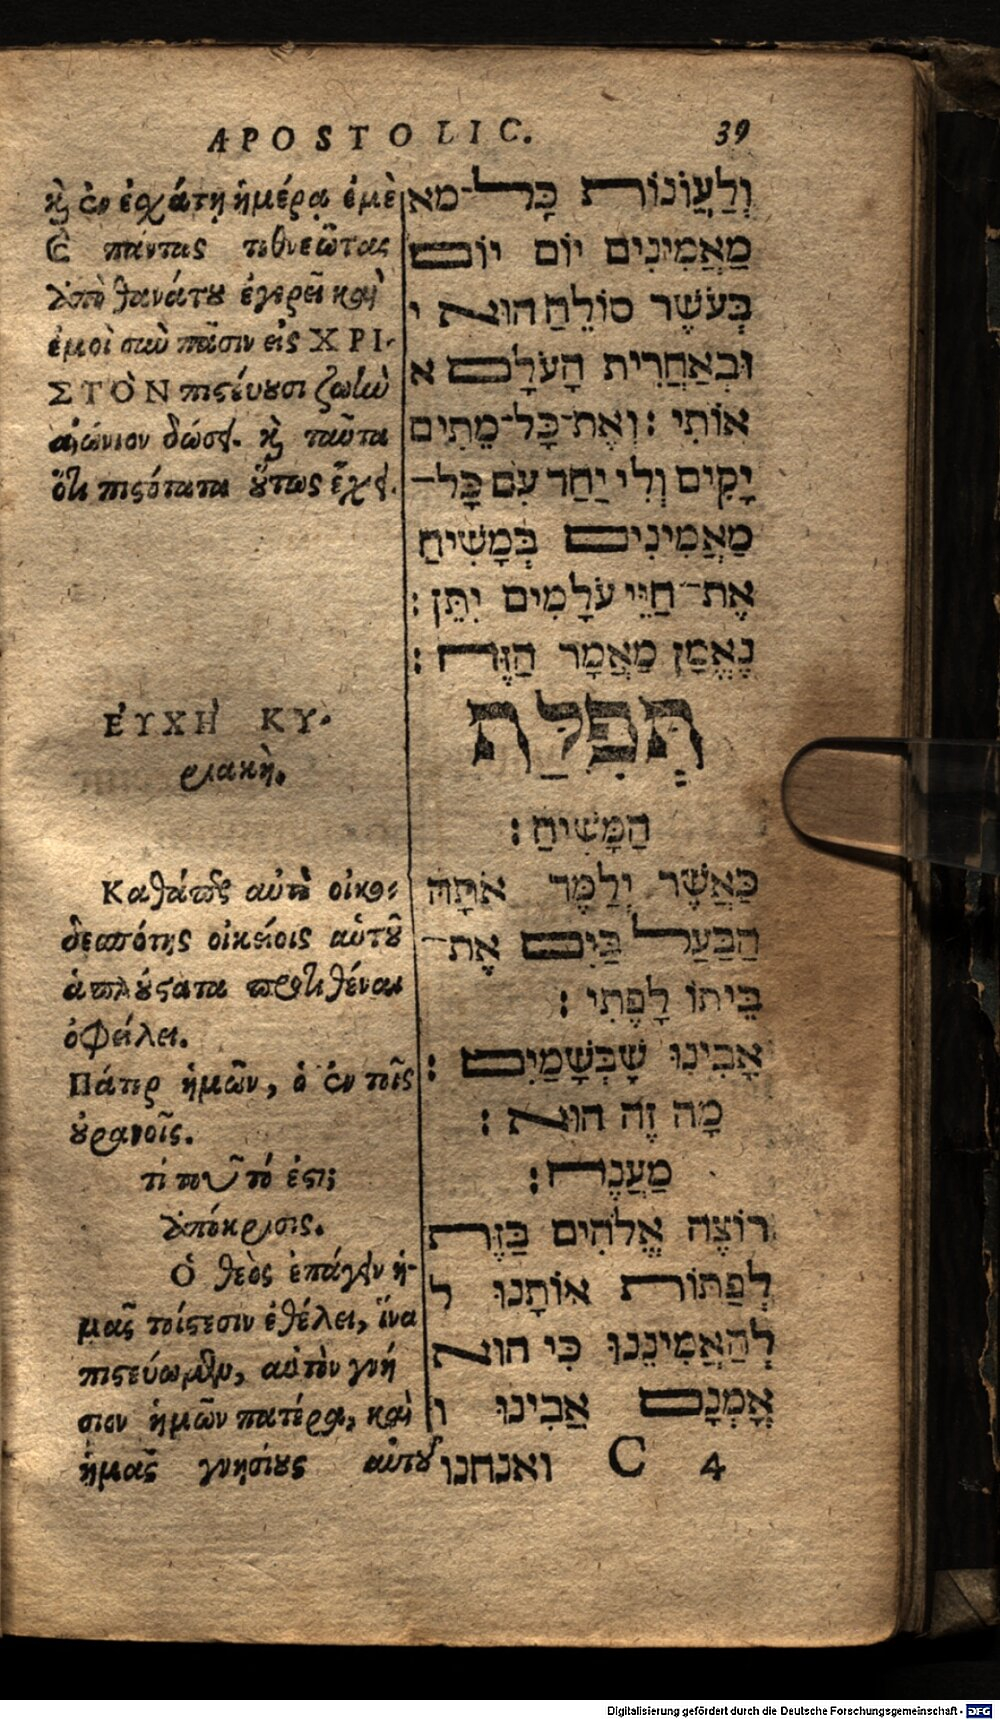 APOSTOLIC. 39
ϗ ἐν ἐχάτῃ ἡμέρᾳ ἐμὲ
ϗ πάντας τεθνεῶτας
ἀπὸ θανάτου ἐγερεῖ καὶ
ἐμοὶ σιὼ πᾶσιν εἰς ΧΡΙ-
ΣΤΟΝ πιστεύουσι ζωὼ
αἰώνιον δώσει. ϗ ταῦτα
ὅτι πιστότατα οὕτως ἔχει.
ΕΥΧΗ ΚΥ-
ριακὴ.
Καθάπερ αὐτὰ οἰκο-
δεσπότης οἰκείοις αὑτοῦ
ἁπλούστατα προτιθέναι
ὀφείλει.
Πάτερ ἡμῶν, ὁ ἐν τοῖς
οὐρανοῖς.
τί τοῦτό ἐστι;
ἀπόκρισις.
Ὁ θεὸς ἐπάγειν ἡ-
μᾶς τοίστεσιν ἐθέλει, ἵνα
πιστεύωμθν, αὐτὸν γνή
σιον ἡμῶν πατέρα, καὶ
ἡμᾶς γνησίους αὐτοῦ
וְלַעֲוֹנוֹת כָּל־מא
מַאֲמִינִים יוֹם יוֹם
בְּעֹשֶׁר סוֹלֵחַ הוּא י
וּבְאַחֲרִית הָעֹלָם א
אוֹתִי : וְאֶת־כָּל־מֵתִים
יָקִים וְלִי יַחַד עִם כָּל־
מַאֲמִינִים בְּמָשִׁיחַ
אֶת־חַיֵּי עֹלָמִים יִתֵּן :
נֶאֱמַן מַאֲמָר הַזֶּה :
תְּפִלַּת
הַמָּשִׁיחַ :
כַּאֲשֶׁר יְלַמֶּד אֹתָהּ
הַבַּעַל בַּיִם אֶת־
בֵּיתוֹ לָפֶתִי :
אָבִינוּ שָׁבְּשָׁמַיִם :
מָה זֶה הוּא :
מַעֲנֶה :
רוֹצֶה אֱלֹהִים בַּזֶּה
לְפַתּוֹת אוֹתָנוּ ל
לְהַאֲמִינֵנוּ כִּי הוּא
אָמְנָם אָבִינוּ ו
C 4 ואנחנו